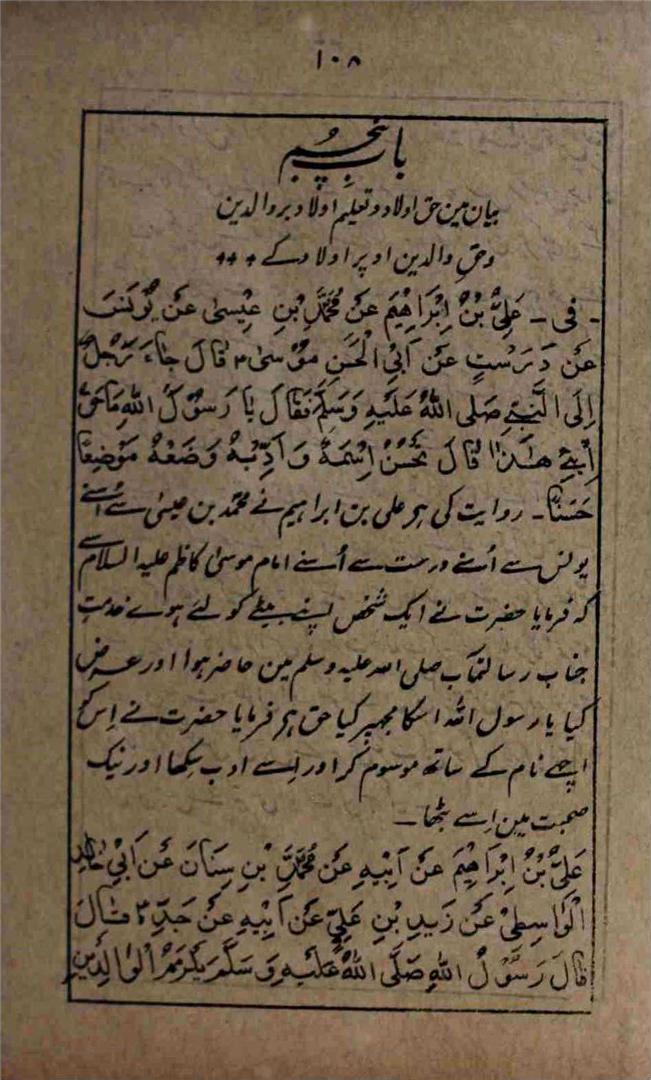 ١٠٨
باب پنجم
بیان مین حق اولاد و تعلیم اولاد بر والدین
و حق والدین اوپر اولاد کے
فی۔ عَلِیُّ بْنُ اِبْرَاهِیْمَ عَنْ مُحَمَّدِ بْنِ عِیْسیٰ عَنْ یُوْنُسَ
عَنْ دَرَسْتٍ عَنْ اَبِی الْحَسَنِ مُوْسیٰ ع قَالَ جَاءَ رَجُلٌ
اِلَی النَّبِیِّ صَلَّی اللهُ عَلَیْهِ وَسَلَّمَ فَقَالَ یَا رَسُوْلَ اللهِ مَا حَقُّ
اِبْنِیْ هٰذَا قَالَ تُحَسِّنُ اِسْمَهٗ وَ اَدِّبْهُ وَضَعْهُ مَوْضِعًا
حَسَنًا۔ روایت کی ہر علی بن ابراہیم نے محمد بن عیسیٰ سے اُسنے
یونس سے اُسنے درست سے اُسنے امام موسیٰ کاظم علیہ السلام سے
کہ فرمایا حضرت نے ایک شخص اپنے بیٹے کو لئے ہوے خدمت
جناب رسالتمآب صلی اللہ علیہ وسلم مین حاضر ہوا اور عرض
کیا یا رسول اللہ اسکا مجھپر کیا حق ہر فرمایا حضرت نے اِسکو
اچھے نام کے ساتھ موسوم کر اور اِسے ادب سکھا اور نیک
صحبت مین اِسے بٹھا۔
عَلِیُّ بْنُ اِبْرَاهِیْمَ عَنْ اَبِیْهِ عَنْ مُحَمَّدِ بْنِ سِنَانَ عَنْ اَبِیْ خَالِدِ
الْوَاسِطِیْ عَنْ زَیْدِ بْنِ عَلِیٍّ عَنْ اَبِیْهِ عَنْ جَدِّهٖ ع قَالَ
قَالَ رَسُوْلُ اللهِ صَلَّی اللهُ عَلَیْهِ وَسَلَّمَ یَلْزَمُ الْوَالِدَیْنِ